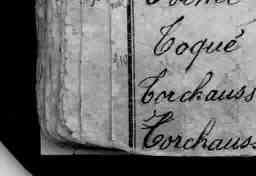 Toqué
Torchauss
Torchauss